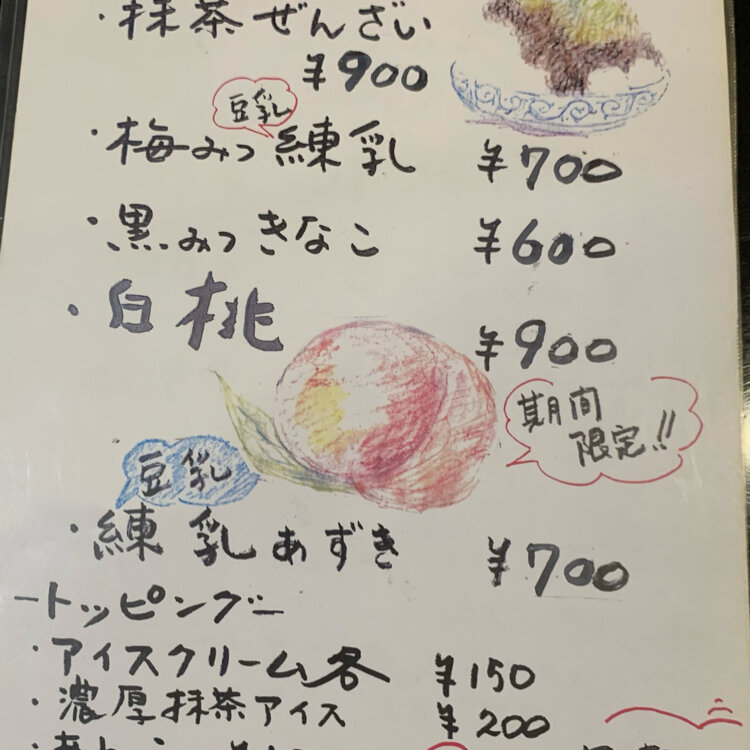 ・抹茶ぜんざい
¥900
豆乳
・梅みつ練乳 ¥700
・黒みつきなこ ¥600
・白桃 ¥900
期間
限定!!
豆乳
・練乳あずき ¥700
ートッピングー
・アイスクリーム各 ¥150
・濃厚抹茶アイス ¥200